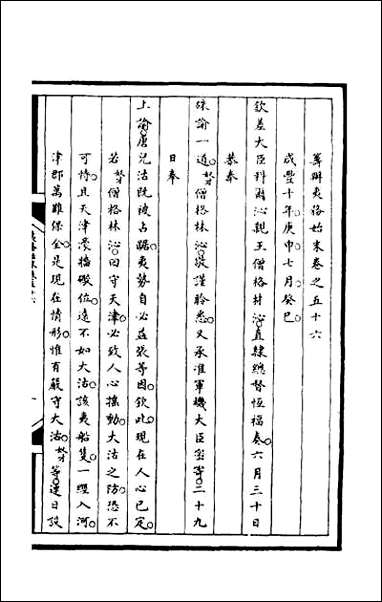 籌辦夷務始末卷之五十六
咸豐十年庚申七月癸巳
欽差大臣科爾沁親王僧格林沁直隸總督恆福奏六月三十日
恭奉
硃諭一道奴才僧格林沁敬謹聆悉又承准軍機大臣密寄二十九
日奉
上諭唐兒沽既被占踞夷勢自必益張等因欽此現在人心已定
若奴才僧格林沁回守天津必致人心搖動大沽之防恐不
可恃且天津濠牆礮位遠不如大沽該夷船隻一經入河
津郡萬難保全是現在情形惟有嚴守大沽奴才等連日設